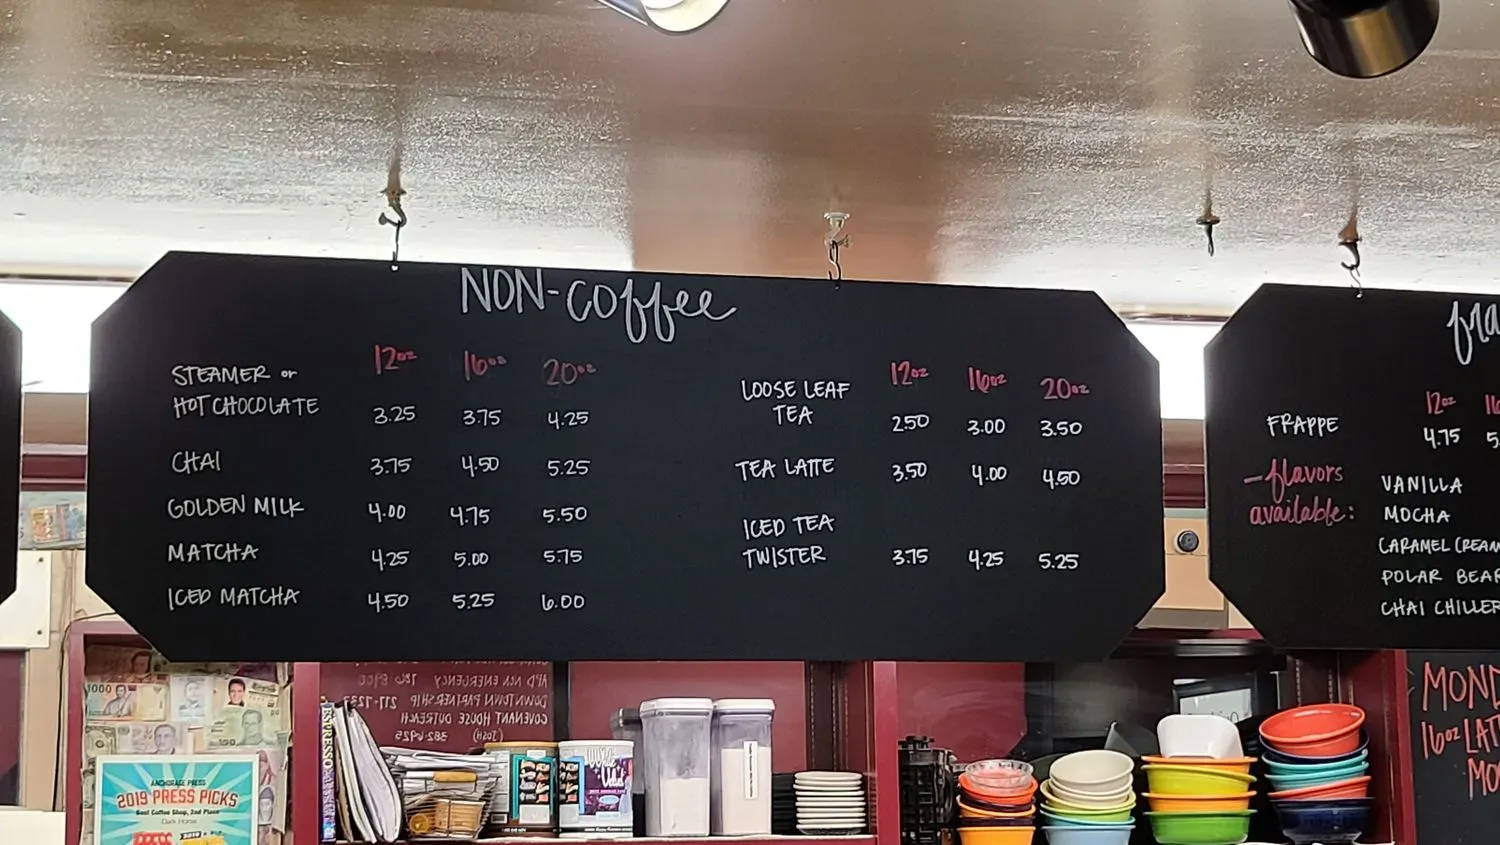 NON-coffee
12oz 16oz 20oz
STEAMER or
HOT CHOCOLATE 3.25 3.75 4.25
CHAI 3.75 4.50 5.25
GOLDEN MILK 4.00 4.75 5.50
MATCHA 4.25 5.00 5.75
ICED MATCHA 4.50 5.25 6.00
12oz 16oz 20oz
LOOSE LEAF
TEA 2.50 3.00 3.50
TEA LATTE 3.50 4.00 4.50
ICED TEA
TWISTER 3.75 4.25 5.25
12oz
FRAPPE 4.75
–flavors
available:
VANILLA
MOCHA
CARAMEL
POLAR
CHAI
APD NON EMERGENCY
DOWNTOWN PARTNERSHIP
COVENANT HOUSE OUTREACH
(JOSH)
ANCHORAGE PRESS
2019 PRESS PICKS
Best Coffee Shop, 2nd Place
Dark Horse
1000
16oz